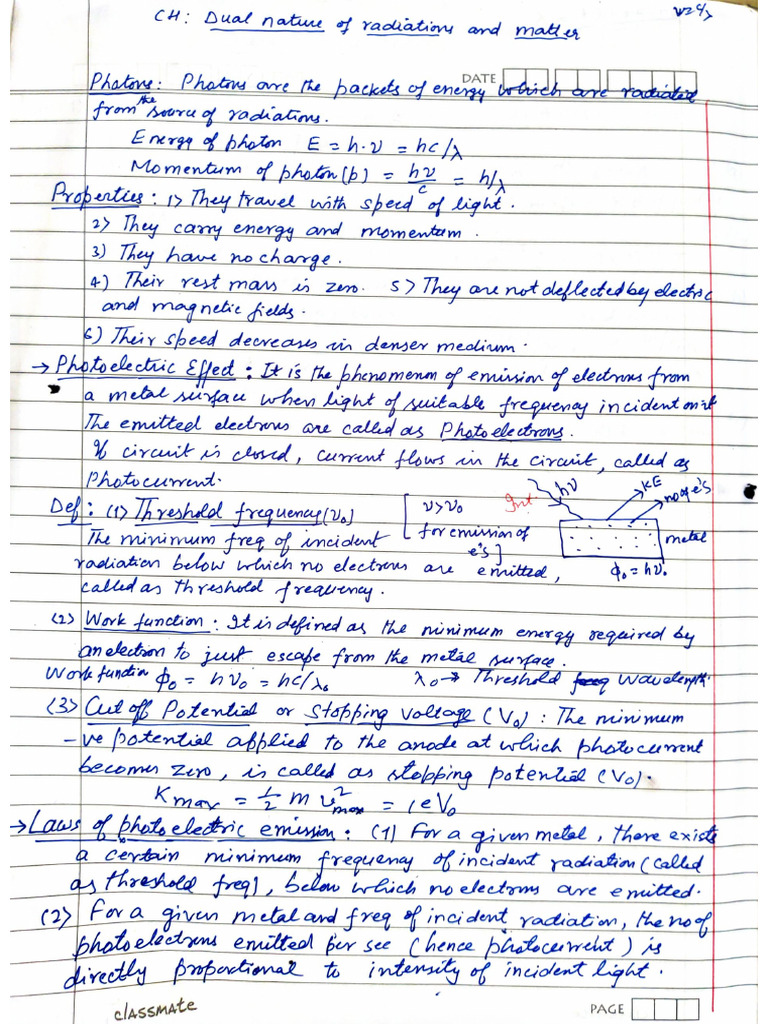 CH: Dual nature of radiations and matter
DATE
Photons: Photons are the packets of energy which are radiated
from the source of radiations.
Energy of photon E = h·ν = hc/λ
Momentum of photon (p) = hν/c = h/λ
Properties: 1> They travel with speed of light.
2> They carry energy and momentum.
3) They have no charge.
4) Their rest mass is zero. 5> They are not deflected by electric
and magnetic fields.
6) Their speed decreases in denser medium.
→ Photoelectric Effect: It is the phenomenon of emission of electrons from
a metal surface when light of suitable frequency incident on it
The emitted electrons are called as Photoelectrons.
If circuit is closed, current flows in the circuit, called as
Photocurrent.
Def: (1) Threshold frequency (ν₀) [ν>ν₀ Int hν KE no of e's
The minimum freq of incident for emission of e's] metal
radiation below which no electrons are emitted, ϕ₀ = hν₀
called as threshold frequency.
(2) Work function: It is defined as the minimum energy required by
an electron to just escape from the metal surface.
Work function ϕ₀ = hν₀ = hc/λ₀ λ₀ → Threshold wavelength
(3) Cut off Potential or Stopping Voltage (V₀): The minimum
-ve potential applied to the anode at which photocurrent
becomes zero, is called as stopping potential (V₀).
Kmax = 1/2 m v²max = eV₀
→ Laws of photoelectric emission: (1) For a given metal, there exists
a certain minimum frequency of incident radiation (called
as threshold freq), below which no electrons are emitted.
(2) For a given metal and freq of incident radiation, the no of
photoelectrons emitted per sec (hence photocurrent) is
directly proportional to intensity of incident light.
classmate
PAGE